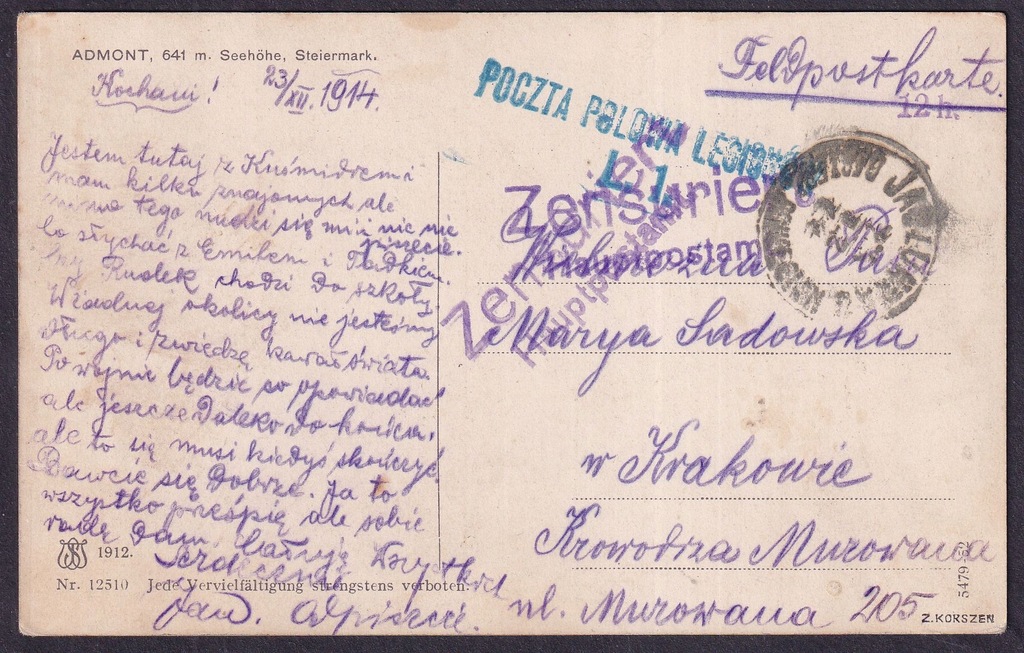 ADMONT, 641 m. Seehöhe, Steiermark.
Kochani! 23/XII. 1914.
Jestem tutaj z Kuśmidrem i
mam kilku znajomych ale
mimo tego nudzi się mi i nic nie
piszecie.
Co słychać z Emilem i Tadkiem
czy Rudek chodzi do szkoły.
W żadnej okolicy nie jesteśmy
długo i zwiedzę kawał świata.
Po wojnie będzie co opowiadać
ale jeszcze daleko do końca,
ale to się musi kiedyś skończyć.
Bawcie się dobrze. Ja to
wszystko prześpię ale sobie
radę dam. Całuję Wszystkich
Serdecznie
Jaś. Odpiszcie.
1912.
Nr. 12510 Jede Vervielfältigung strengstens verboten.
Feldpostkarte.
12 h.
POCZTA POLOWA LEGIONÓW
L. 1.
Zensuriert
Hauptpostamt
Zensuriert
Hauptpostamt
Wielmożna Pani
Marya Sadowska
w Krakowie
Krowodrza Murowana
ul. Murowana 205
5479 52
Z. KORSZEN